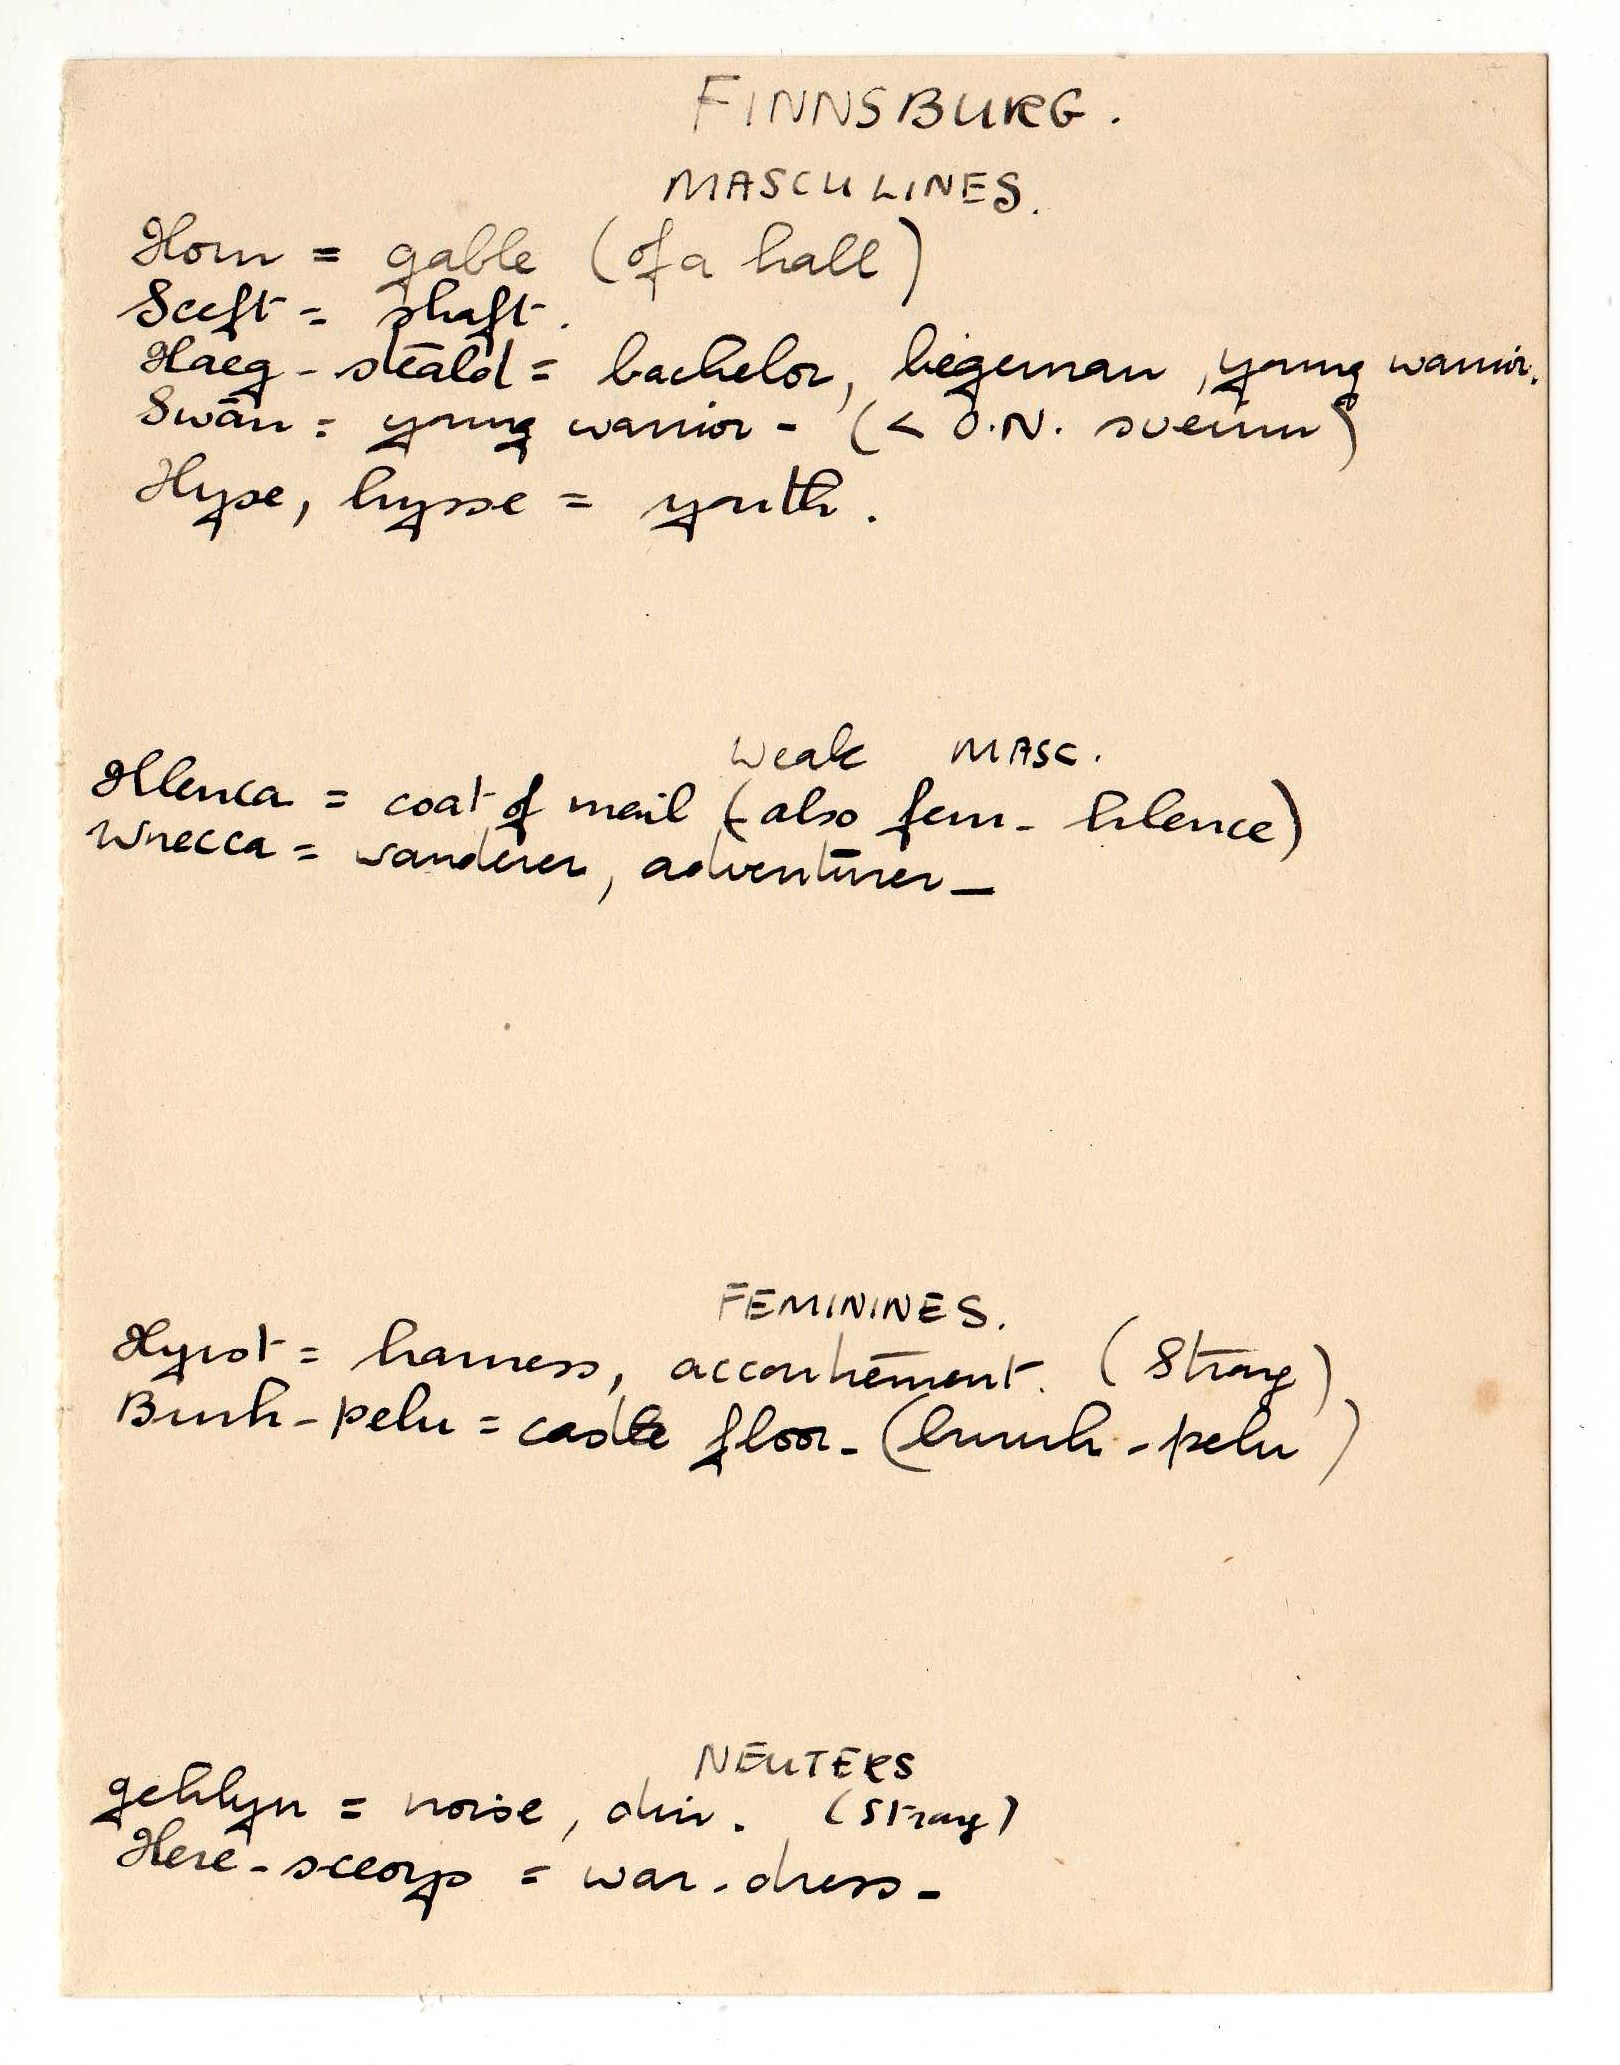 FINNSBURG.
MASCULINES.
Horn = gable (of a hall)
Sceft = shaft.
Haeg-steald = bachelor, liegeman, young warrior.
Swān = young warrior - (< O.N. sveinn)
Hyse, hysse = youth.
Weak MASC.
Hlenca = coat of mail (also fem- hlence)
Wrecca = wanderer, adventurer_
FEMININES.
Hyrst = harness, accoutrement. (Strong)
Burh-þelu = castle floor- (buruh-þelu)
NEUTERS
gehlyn = noise, din. (Strong)
Here-sceorp = war-dress-